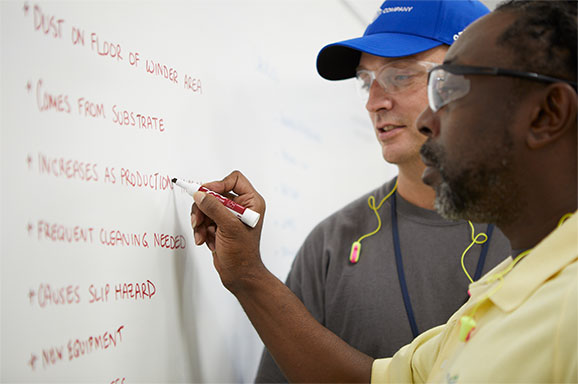 * DUST ON FLOOR OF WINDER AREA
* COMES FROM SUBSTRATE
* INCREASES AS PRODUCTION
* FREQUENT CLEANING NEEDED
* CAUSES SLIP HAZARD
* NEW EQUIPMENT
COMPANY